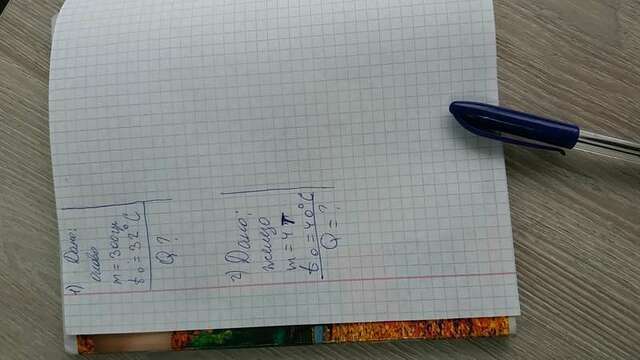 1) Дано:
олово
m = 300гр
t₀ = 32°C
Q ?
2) Дано:
железо
m = 4 т
t₀ = 40°C
Q = ?